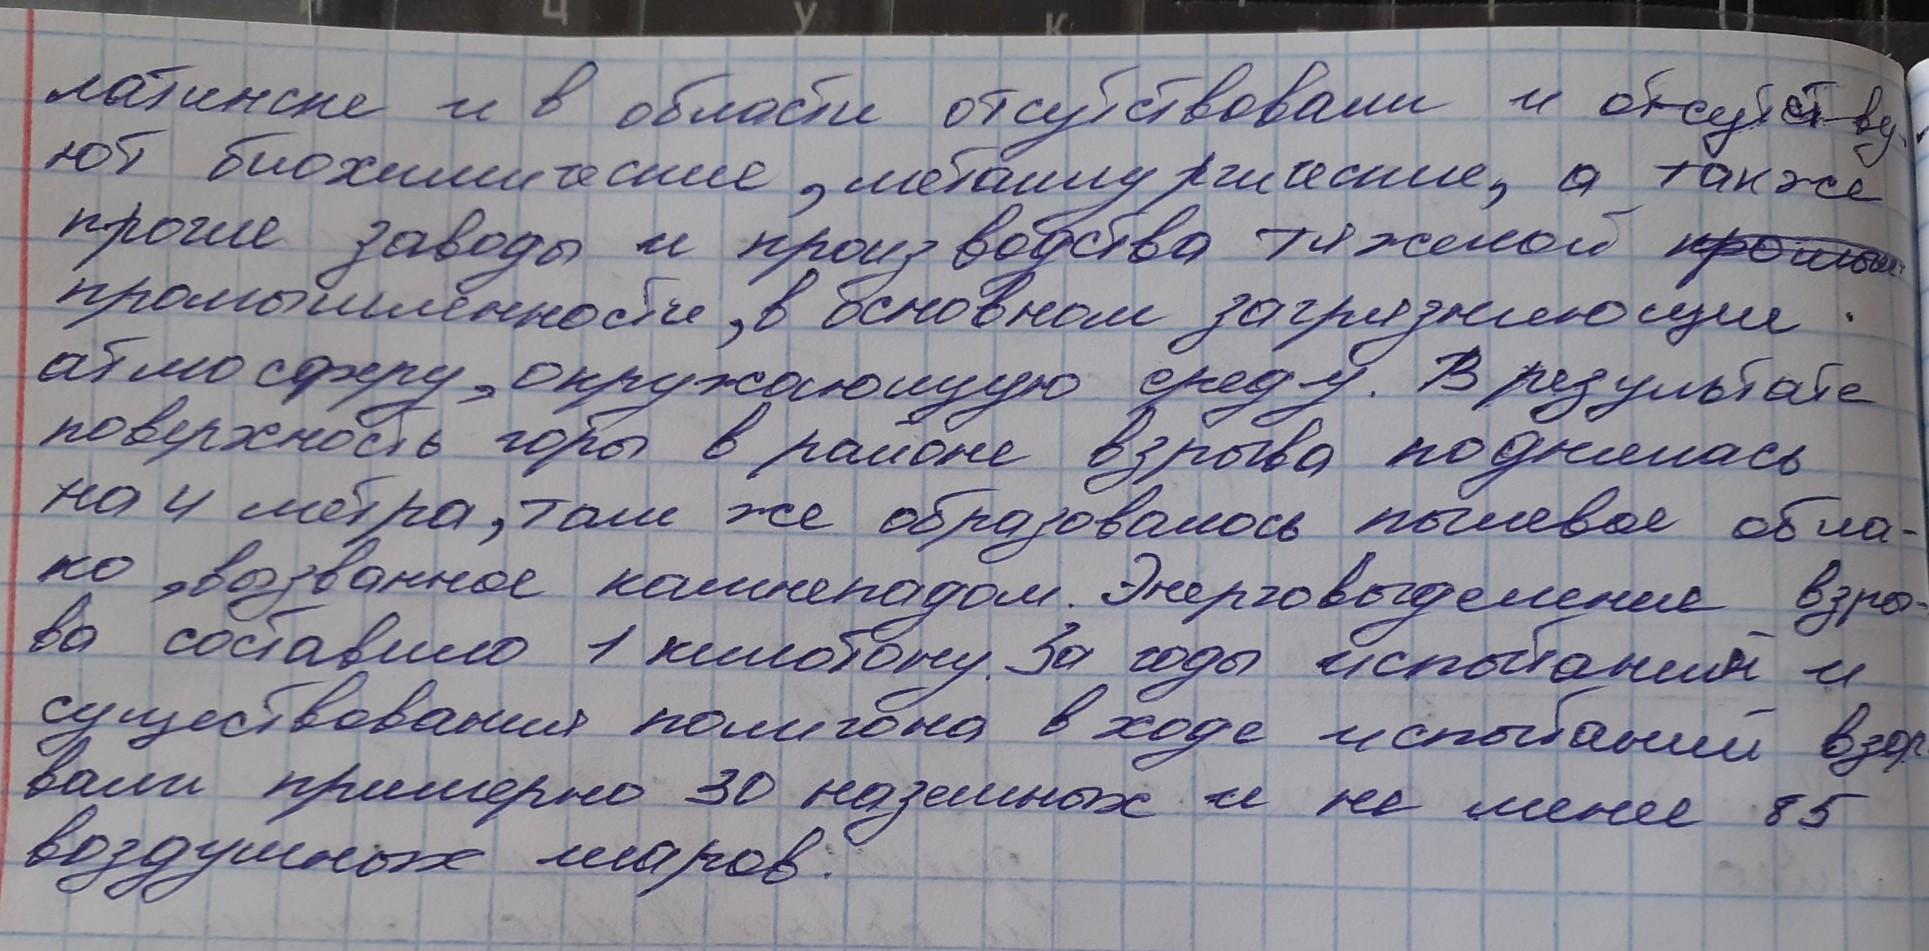 ц у к
латинске и в области отсутствовали и отсутству
ют биохимические, металлургические, а также
прочие заводы и производства тяжелой
промышленности, в основном загрязняющие
атмосферу, окружающую среду. В результате
поверхность горы в районе взрыва поднялась
на 4 метра, там же образовалось пылевое обла-
ко, вызванное камнепадом. Энерговыделение взры-
ва составило 1 килотону. За годы испытаний и
существования полигона в ходе испытаний взор
вали примерно 30 наземных и не менее 85
воздушных шаров.